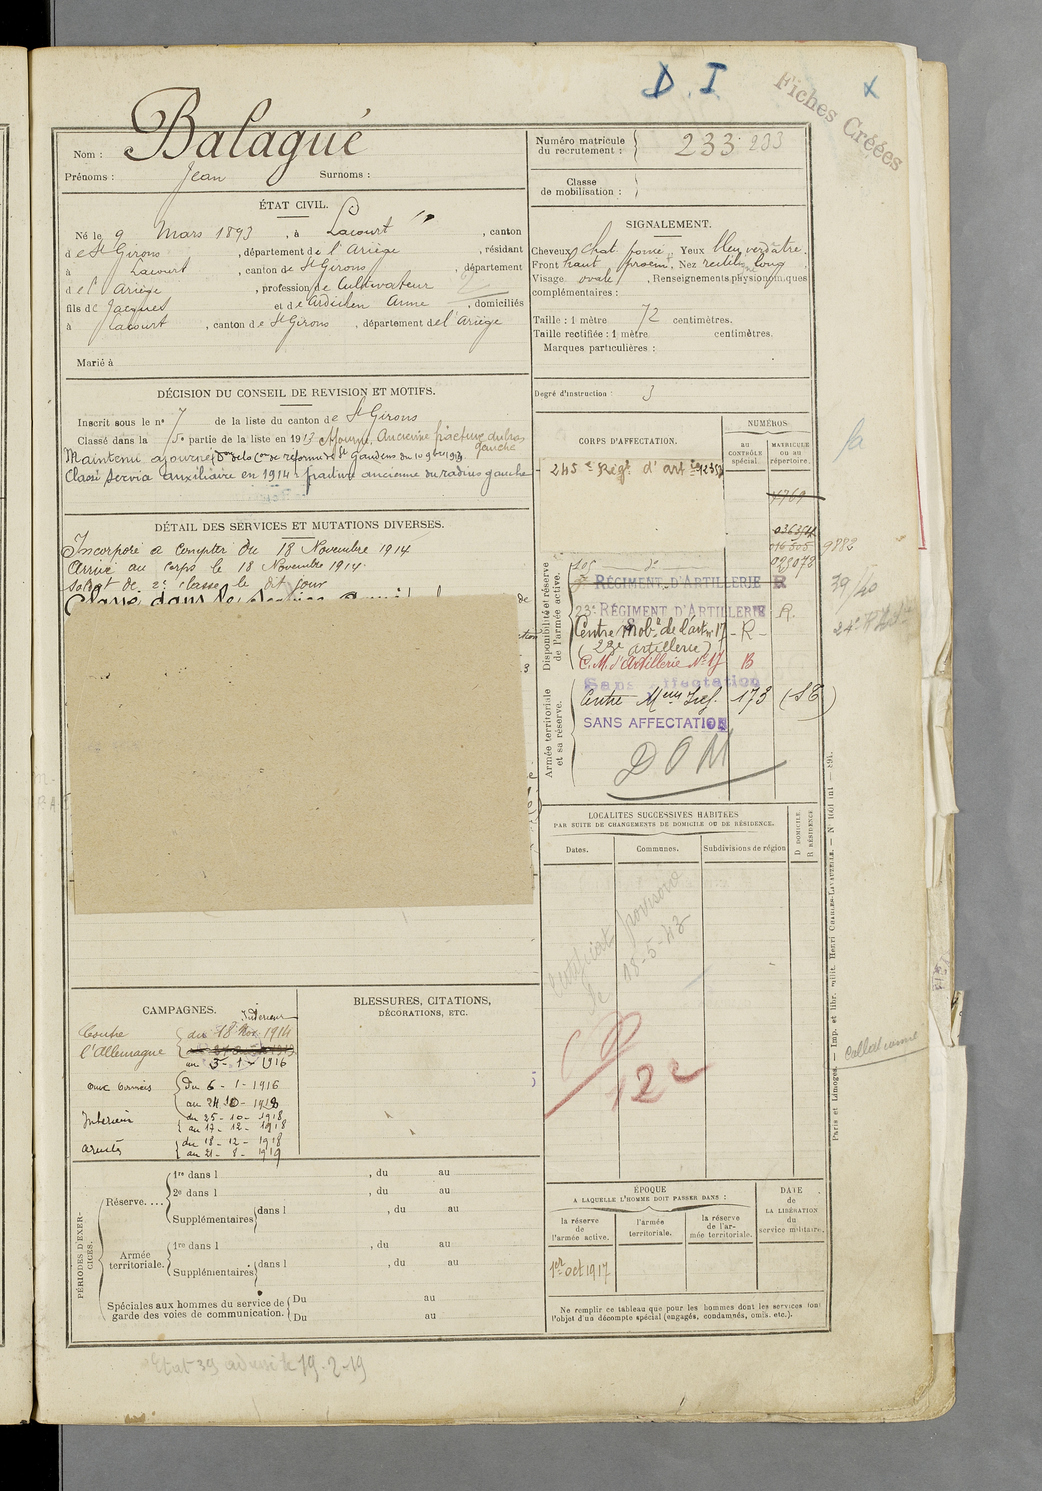 D. I
Fiches Créées
Nom : Balagué
Prénoms : Jean Surnoms :
Numéro matricule du recrutement : 233 233
Classe de mobilisation :
ÉTAT CIVIL.
Né le 9 Mars 1893, à Lacourt, canton
de St Girons, département de l'Ariège, résidant
à Lacourt, canton de St Girons, département
de l'Ariège, profession de Cultivateur
fils de Jacques et de Anne, domiciliés
à Lacourt, canton de St Girons, département de l'Ariège
Marié à
SIGNALEMENT.
Cheveux chat foncé, Yeux bleu verdâtre
Front haut, Nez rectiligne long
Visage ovale, Renseignements physionomiques
complémentaires :
Taille : 1 mètre 72 centimètres.
Taille rectifiée : 1 mètre centimètres.
Marques particulières :
Degré d'instruction : 3
DÉCISION DU CONSEIL DE REVISION ET MOTIFS.
Inscrit sous le no 7 de la liste du canton de St Girons
Classé dans la 5e partie de la liste en 1913 Ajourné, Ancienne fracture du bras gauche
Maintenu ajourné Don de la Con de réforme de St Gaudens du 10 9bre 1913
Classé service auxiliaire en 1914 - fracture ancienne du radius gauche
DÉTAIL DES SERVICES ET MUTATIONS DIVERSES.
Incorporé à compter du 18 Novembre 1914
Arrivé au corps le 18 Novembre 1914.
Soldat de 2e classe le dit jour
Classé dans le service
CORPS D'AFFECTATION.
NUMÉROS
au CONTRÔLE spécial.
MATRICULE ou au répertoire.
245e Régt d'artie
1769
036354
016305 9882
029078
Disponibilité et réserve de l'armée active.
105 do
RÉGIMENT D'ARTILLERIE R
23e RÉGIMENT D'ARTILLERIE R.
Centre Mobr de l'art n° 17 - R -
(23e artillerie)
C.M. d'Artillerie No 17 B
39/40
Armée territoriale et sa réserve.
Sans affectation
Centre Meur Inf. 173 (SE)
SANS AFFECTATION
DOM
LOCALITÉS SUCCESSIVES HABITÉES
PAR SUITE DE CHANGEMENTS DE DOMICILE OU DE RÉSIDENCE.
Dates. Communes. Subdivisions de région
D DOMICILE. R RÉSIDENCE
Certificat provisoire
le 18-5-43
Paris et Limoges. — Imp. et libr. milit. Henri CHARLES-LAVAUZELLE. — N° 1601 int — 891.
CAMPAGNES.
Contre l'Allemagne
Intérieur
du 18 Nov. 1914
au 5 - 1 - 1916
aux armées
du 6 - 1 - 1916
au 24 10 - 1918
Intérieur
du 25 - 10 - 1918
au 17 - 12 - 1918
armées
du 18 - 12 - 1918
au 21 - 8 - 1919
BLESSURES, CITATIONS,
DÉCORATIONS, ETC.
PÉRIODES D'EXERCICES.
Réserve....
1re dans l , du au
2e dans l , du au
Supplémentaires dans l , du au
Armée territoriale.
1re dans l , du au
Supplémentaires dans l , du au
Spéciales aux hommes du service de garde des voies de communication.
Du au
Du au
ÉPOQUE
A LAQUELLE L'HOMME DOIT PASSER DANS :
la réserve de l'armée active.
l'armée territoriale.
la réserve de l'armée territoriale.
DATE de LA LIBÉRATION du service militaire.
1er oct 1917
Ne remplir ce tableau que pour les hommes dont les services font
l'objet d'un décompte spécial (engagés, condamnés, omis, etc.).
Etat 39 adressé le 19-2-19